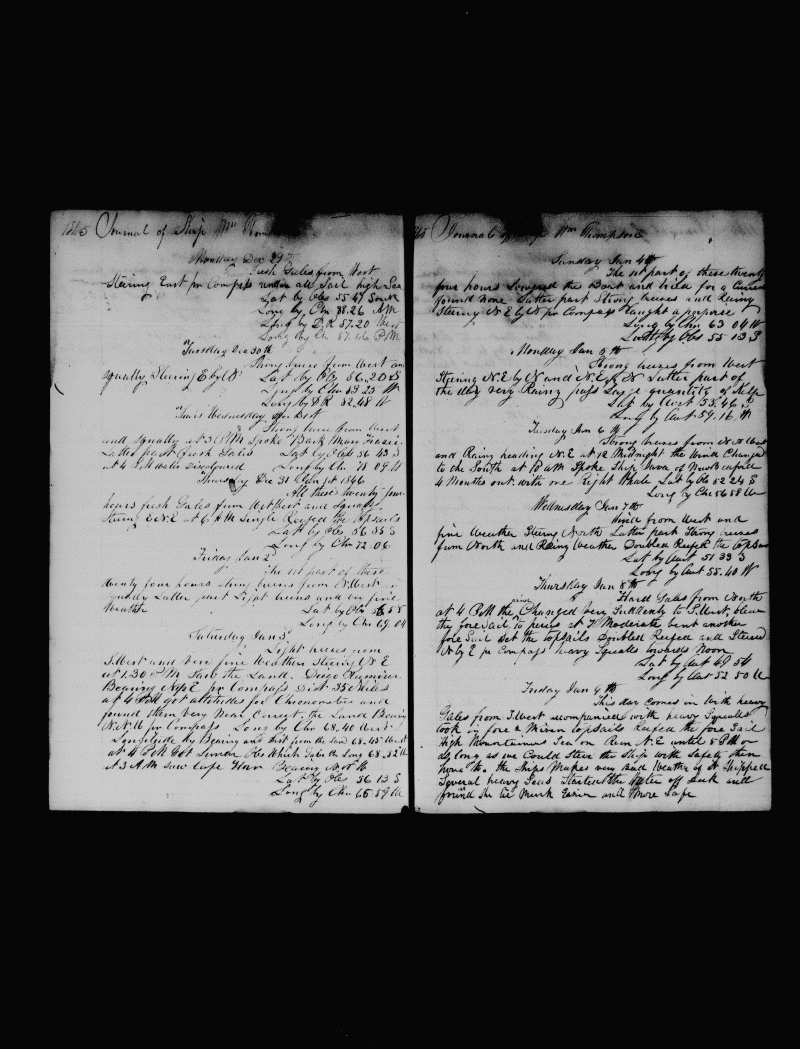 1845 Journal of Ship Wm
Monday Dec 29th
Fresh Gales from West
Stering East pr Compass under all Sail high Sea
Lat by Obs 55.47 South
Long by Chr 88.26 AM
Long by D.R 87.20 West
Long by Chr 87.46 P.M
Tuesday Dec 30th
Strong breeze from West and
squally Steering E by N Lat by Obs 56.20 S
Long by Chr 83 23 W
Long by D R 82.48 W
Wednesday
Strong breeze from West
and Squally at 3 PM Spoke Bark
Latter part Fresh Gales Lat by Obs 56 43 S
at 4 Long by Chr 78 09 W
Thursday Dec 31 1846
All these twenty four
hours fresh Gales from West and Squally
Stering E.N.E at 6 A M Single Reefed the topsails
Lat by Obs 56 35 S
Long by Chr 72.06
Friday Jan 2
The 1st part of these
twenty four hours strong breeze from N.West
squally Latter part Light breeses and very fine
Weather Lat by Obs 56 58
Long by Chr 69.04
Saturday Jan 3d
Light breeses from
S.West and Very fine Weather Stering N E
at 1.30 P M Saw the Land. Diego Ramires
Bearing N E pr Compass Dist 35 Miles
at 4 PM got altitudes for Chronometer and
found them very Near Correct. the Land Bearing
N.N.W pr Compass. Long by Chr 68.40 West
Longitude by Bearing and dist from the Land 68.45 West
at 4 PM Got Lunar Obs Which Gave the Long 68.52 W
At 3 A M saw Cape Horn Bearing North
Lat by Obs 56 13 S
Long by Chr 65 59 W
Journal of Ship Wm Thompson
Sunday Jan 4th
The 1st part of these twenty
four hours Lowered the Boat and tried for a Current
found none Latter part Strong breeses and Rainy
Steering N E by N pr Compass Caught a porpoise
Long by Chr 63 04 W
Latt by Obs 55 13 S
Monday Jan 5th
Strong breeses from West
Stering N.E by N and N.E & N Latter part of
the day very Rainy pass Large quantity of Kelp
Lat by Acct 53.46 S
Long by Acct 59.16 W
Tuesday Jan 6th
Strong breeses from N.N West
and Rainy heading N.E at 12 Midnight the Wind Changed
to the South at 10 AM Spoke Ship of New Bedford
4 Months out. with one Right Whale Lat by Obs 52 24 S
Long by Chr 56 58 W
Wednesday Jan 7th
Wind from West and
fine Weather Stering North Latter part Strong breeses
from North and Rainy Weather Doubled Reefed the topsails
Lat by Acct 51 33 S
Long by Acct 55.40 W
Thursday Jan 8th
Hard Gales from North
at 4 P M the wind Changed very Suddenly to S.West, blew
the fore Sail to peices at 7 Moderate bent another
fore Sail Set the topsails Doubled Reefed and Steered
N by E pr Compass heavy Squalls towards Noon
Lat by Acct 49 54
Long by Acct 52 50 W
Friday Jan 9th
This day comes in With heavy
Gales from S.West accompanied with heavy Squalls
took in fore & Mizen topsails Reefed the fore Sail
High Mountainous Sea on Run N.E untill 8 P M
as long as we Could Steer the Ship with Safety then
hove to. the Ships Makes very bad Weather of it Shipped
Several heavy Seas Started the Water off deck and
found She lie Much Easier and More Safe